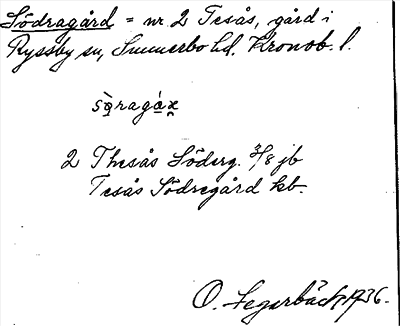 Södragård = nr 2 Tesås, gård i
Ryssby sn, Sunnerbo hd. Kronob. l.
2 Thesås Söderg. 3/8 jb
Tesås Södregård kb.
O. Segerbäck 1936.